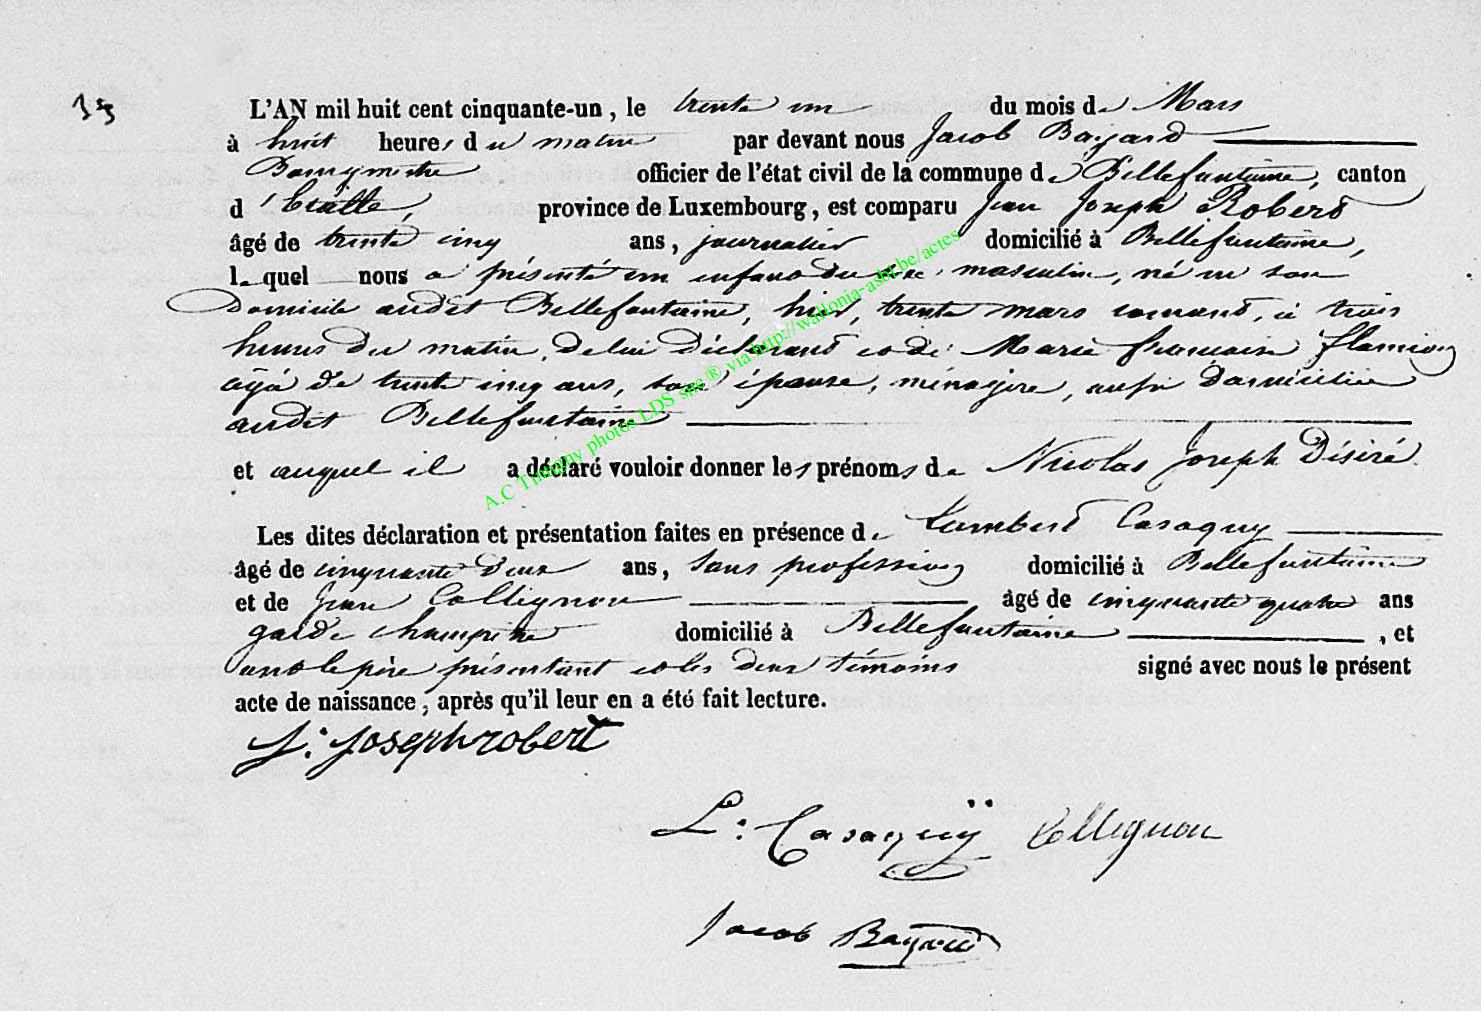 L'AN mil huit cent cinquante-un, le trente un du mois de Mars
à huit heures du matin par devant nous Jacob Bayard
Bourgmestre officier de l'état civil de la commune de Bellefontaine, canton
d'Etalle, province de Luxembourg, est comparu Jean Joseph Robert
âgé de trente cinq ans, journalier domicilié à Bellefontaine,
lequel nous a présenté un enfant du sexe masculin, né en son
domicile audit Bellefontaine, hier, trente mars courant, à trois
heures du matin, de lui déclarant et de Marie françoise flamion
âgée de trente cinq ans, son épouse, ménagère, aussi domiciliée
audit Bellefontaine
et auquel il a déclaré vouloir donner les prénoms de Nicolas Joseph Désiré.
Les dites déclaration et présentation faites en présence de Lambert Casaquy
âgé de cinquante deux ans, sans profession domicilié à Bellefontaine
et de Jean Collignon âgé de cinquante quatre ans
garde champêtre domicilié à Bellefontaine, et
ont le père présentant et les deux témoins signé avec nous le présent
acte de naissance, après qu'il leur en a été fait lecture.
J: Joseph robert
L: Casaquÿ Collignon
Jacob Bayard
A.C Tintigny photos LDS site ® via http://wallonia-asbl.be/actes